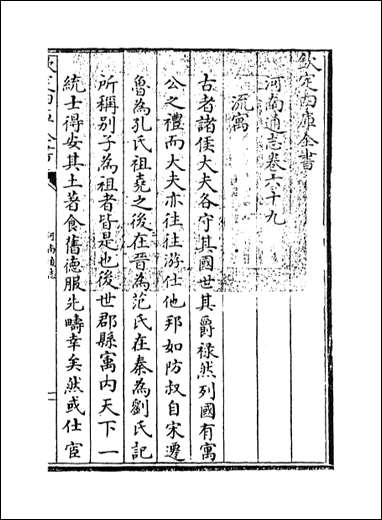 欽定四庫全書
河南通志卷六十九
流寓
古者諸侯大夫各守其國世其爵祿然列國有寓
公之禮而大夫亦往往游仕他邦如防叔自宋遷
魯為孔氏祖堯之後在晉為范氏在秦為劉氏記
所稱别子為祖者皆是也後世郡縣寓内天下一
統士得安其土著食舊德服先疇幸矣然或仕宦
欽定四庫全書
河南通志
一